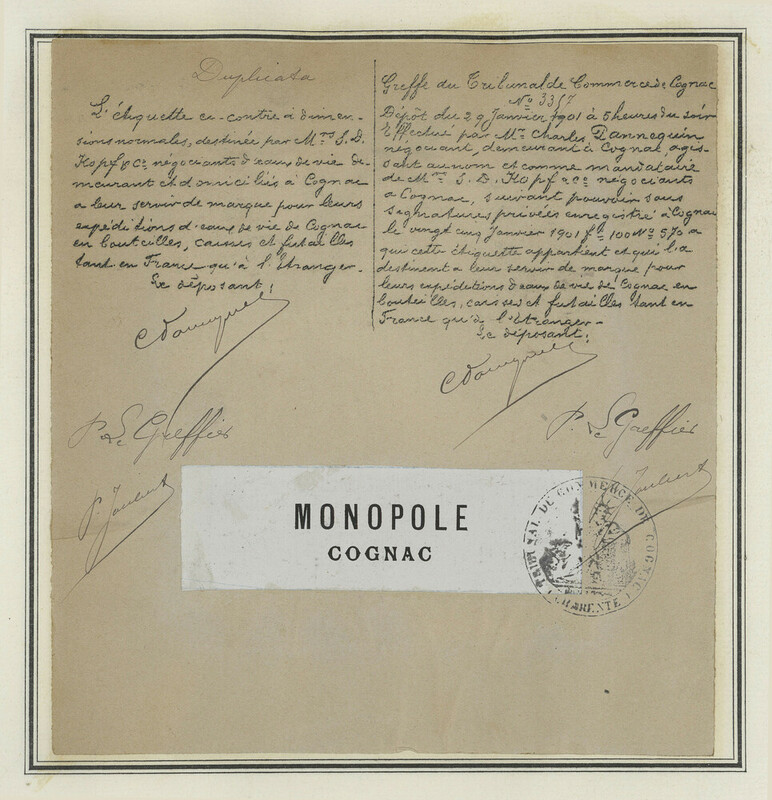 Duplicata
L'étiquette ci-contre à dimen-
sions normales, destinée par Mrs S. D.
Kopf & Co négociants d'eaux de vie de-
meurant et domiciliés à Cognac
a leur servir de marque pour leurs
expéditions d'eaux de vie de Cognac
en bouteilles, caisses et futailles
tant en France qu'à l'Etranger-
Le déposant;
P. Le Greffier
Greffe du Tribunal de Commerce de Cognac
No 3357
Dépôt du 29 Janvier 1901 à 5 heures du soir
Effectué par Mr. Charles Dannequin
négociant, demeurant à Cognac, agis-
sant au nom et comme mandataire
de Mrs S. D. Kopf & Co négociants
a Cognac, suivant pouvoir sous
segnatures privées enregistré à Cognac
le vingt cinq Janvier 1901 fo 100 No 570 a
qui cette étiquette appartient et qui l'a
destinent a leur servir de marque pour
leurs expéditions d'eaux de vie de Cognac en
bouteilles, caisses et futailles tant en
France qu'à l'Etranger-
Le déposant;
P. Le Greffier
MONOPOLE
COGNAC
TRIBUNAL DE COMMERCE DE COGNAC
CHARENTE